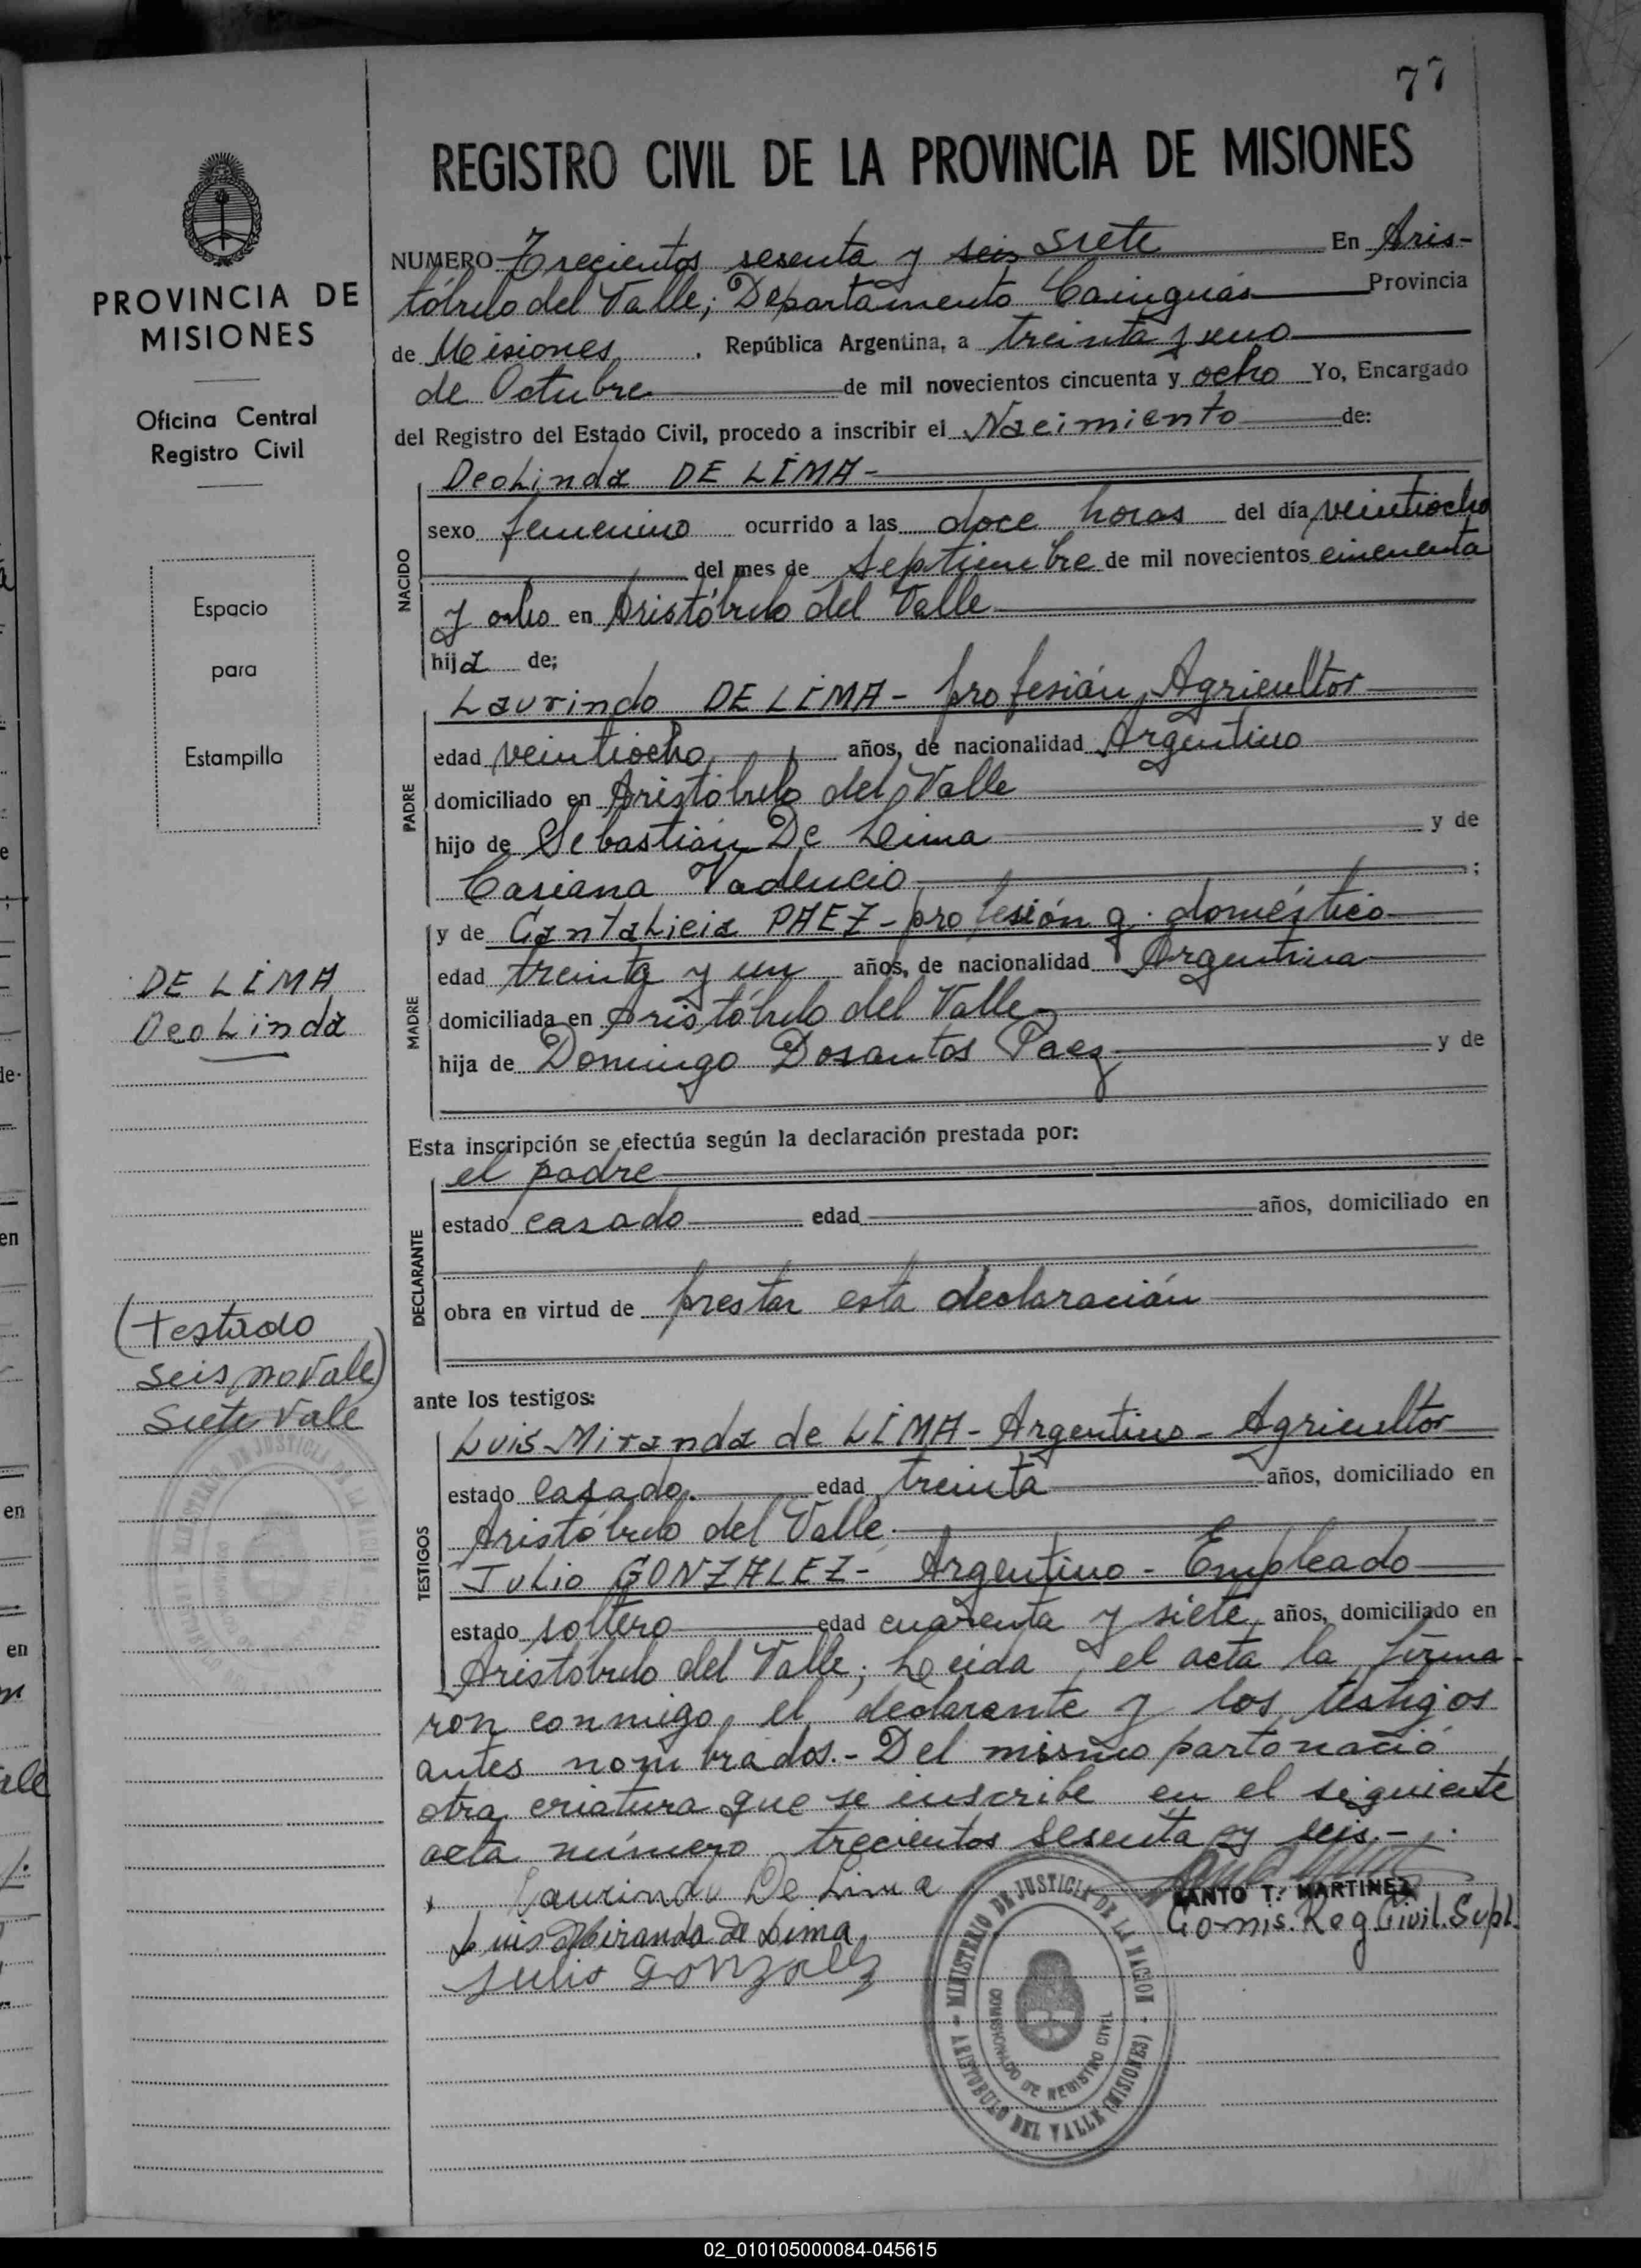 77
REGISTRO CIVIL DE LA PROVINCIA DE MISIONES
PROVINCIA DE
MISIONES
Oficina Central
Registro Civil
Espacio
para
Estampilla
DE LIMA
Deolinda
(testado
seis no vale)
siete vale
NUMERO Trecientos sesenta y seis siete En Aris-
tóbulo del Valle; Departamento Cainguás Provincia
de Misiones, República Argentina, a treinta y uno
de Octubre de mil novecientos cincuenta y ocho Yo, Encargado
del Registro del Estado Civil, procedo a inscribir el Nacimiento de:
NACIDO
Deolinda DE LIMA-
sexo femenino ocurrido a las doce horas del día veintiocho
del mes de septiembre de mil novecientos cincuenta
y ocho en Aristóbulo del Valle
hija de;
PADRE
Laurindo DE LIMA- profesián Agricultor
edad veintiocho años, de nacionalidad Argentino
domiciliado en Aristóbulo del Valle
hijo de Sebastián De Leima y de
Casiana ;
MADRE
y de Cantalicia PAEZ- profesión q. doméstico
edad treinta y un años, de nacionalidad Argentina
domiciliada en Aristóbulo del Valle
hija de Domingo Dosantos Paez y de
Esta inscripción se efectúa según la declaración prestada por:
DECLARANTE
el padre
estado casado edad años, domiciliado en
obra en virtud de prestar esta declaracián
ante los testigos:
TESTIGOS
Luis Miranda de LIMA- Argentino- Agricultor
estado casado. edad treinta años, domiciliado en
Aristóbulo del Valle
Julio GONZALEZ- Argentino- Empleado
estado soltero edad cuarenta y siete años, domiciliado en
Aristobulo del Valle; Leida el acta la firma-
ron conmigo, el declarante y los testigos
antes nombrados.- Del mismo parto nació
otra criatura que se inscribe en el siguiente
acta número trecientos sesenta y seis.-
Laurindo De Lima
SANTO T. MARTINEZ
Comis. Reg Civil. Supl.
Luis Miranda De Lima
Julio Gonzalez
MINISTERIO DE JUSTICIA DE LA NACION
COMISIONADO DE REGISTRO CIVIL
ARISTOBULO DEL VALLE (MISIONES)
02_010105000084-045615